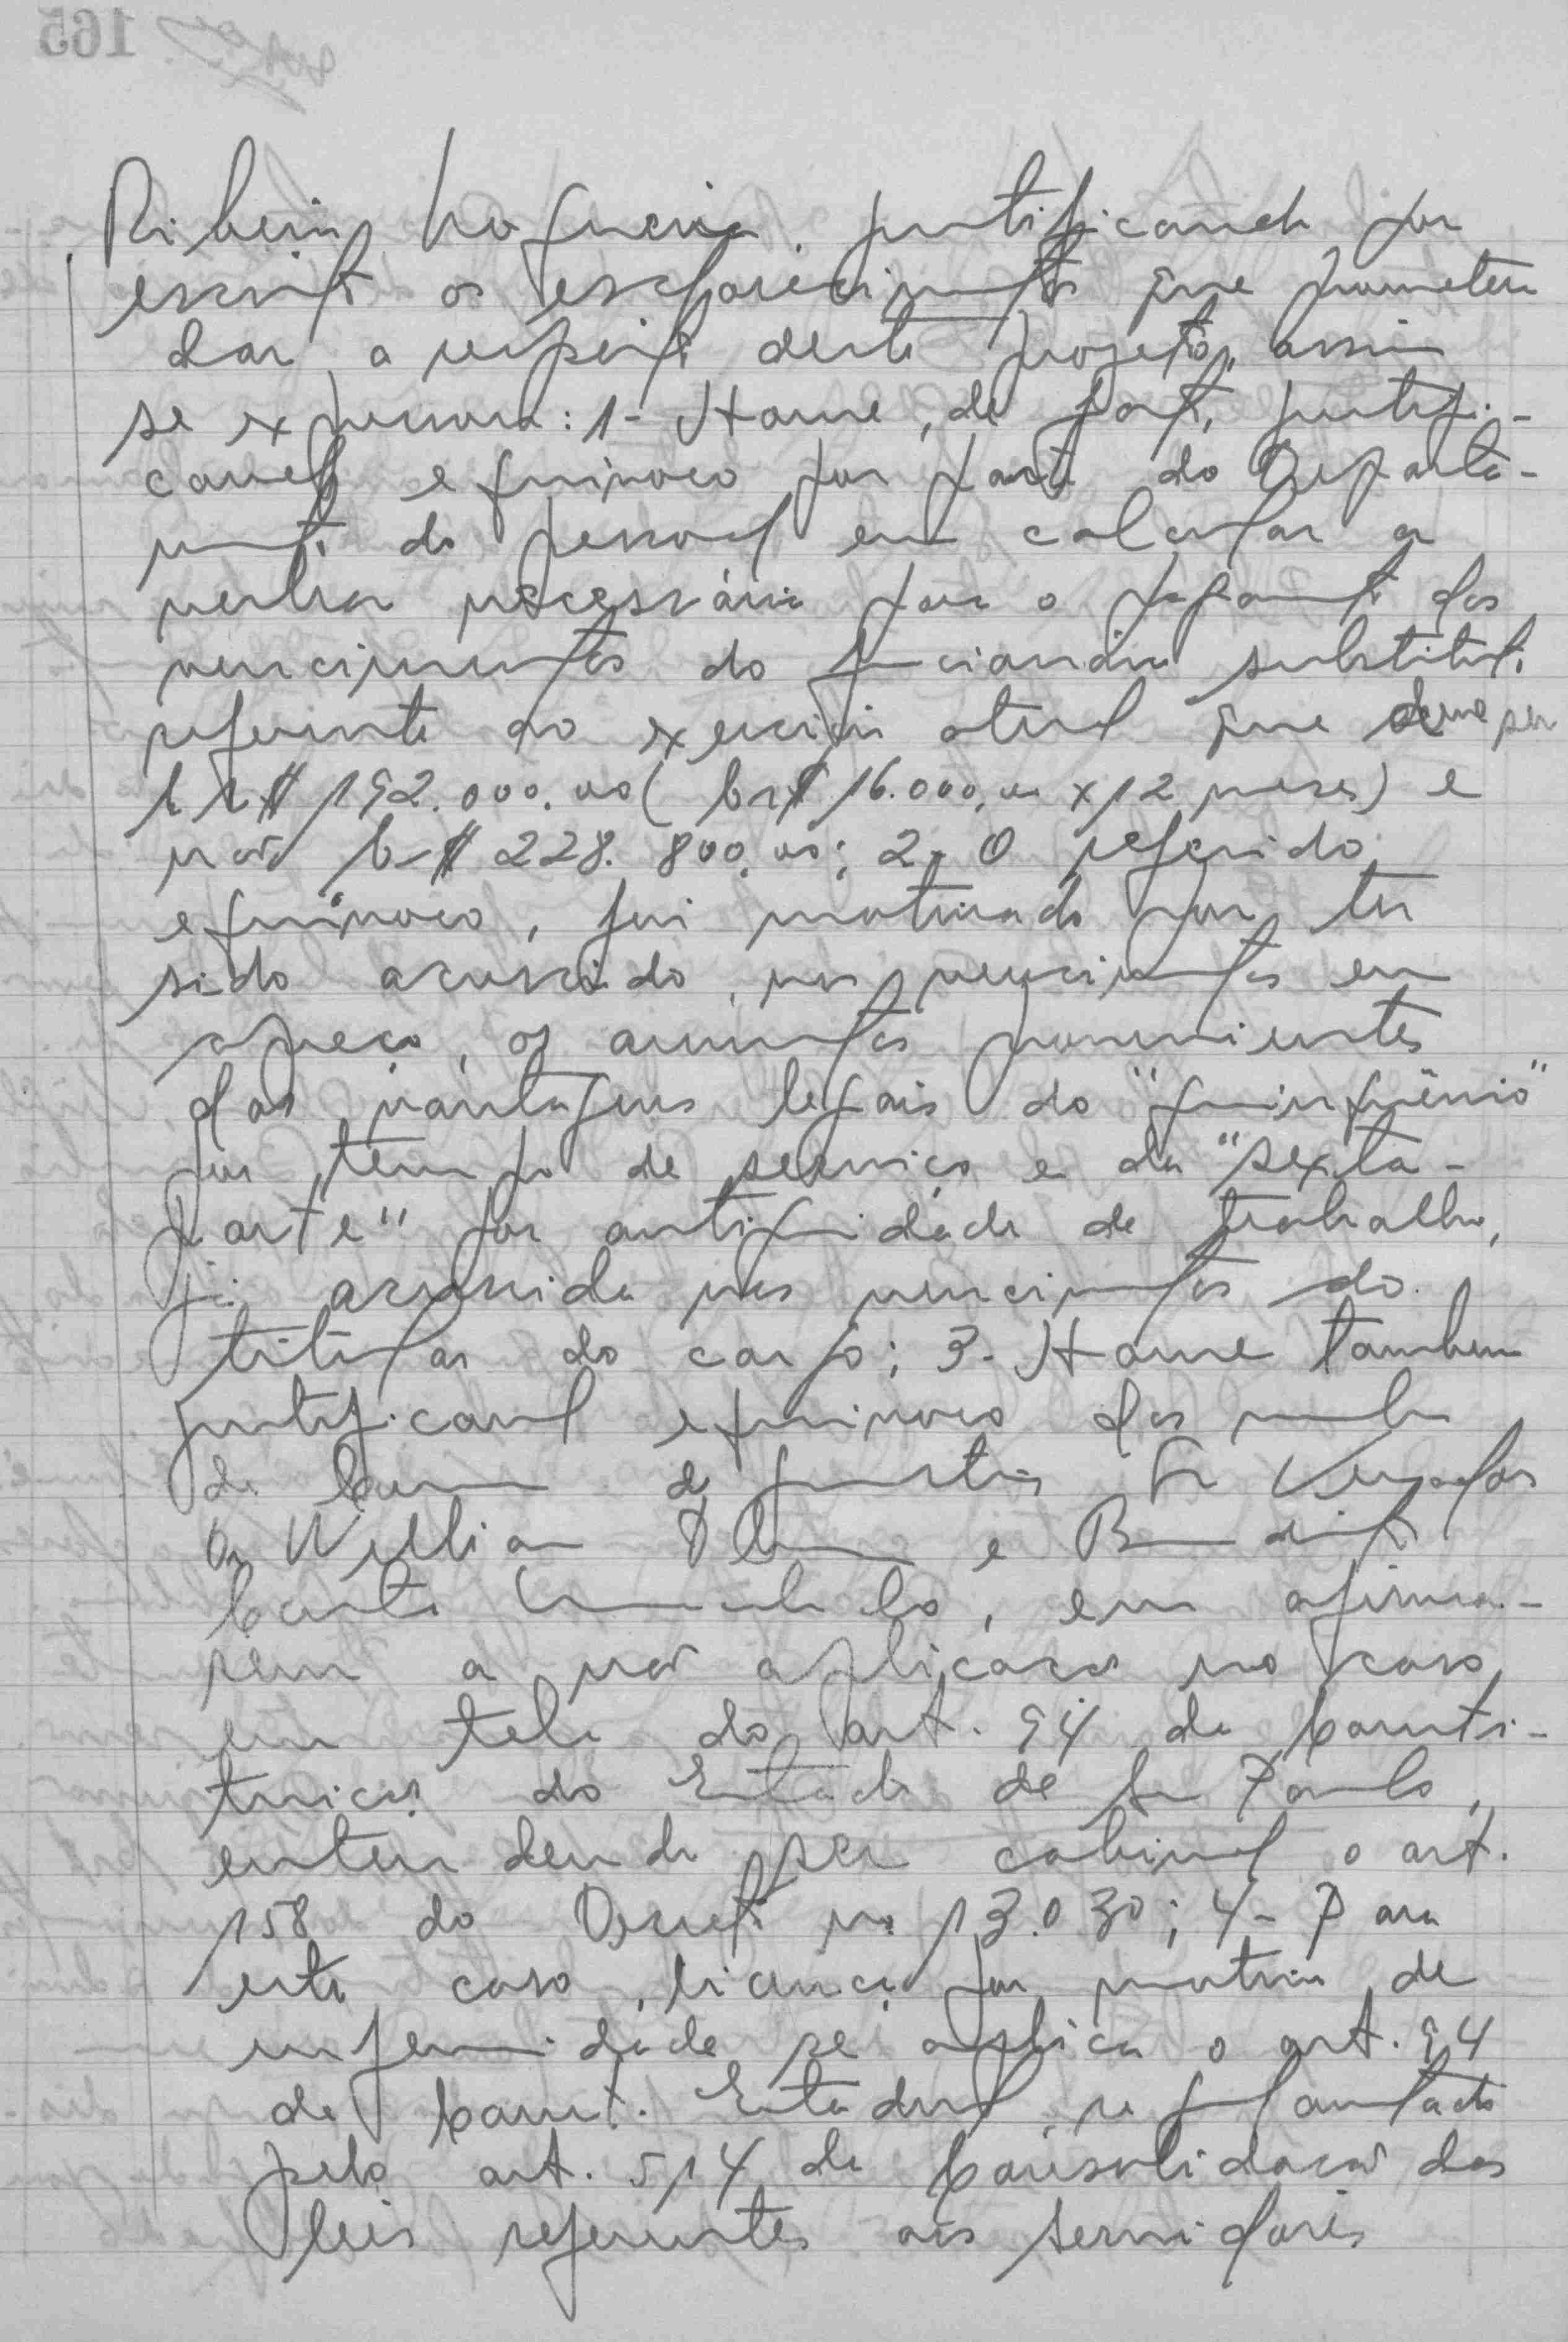 Ribeiro Nogueira. justificando por
escrito os esclarecimentos que prometeu
dar a respeito deste projeto, assim
se expressou: 1- Houve, de fato, justifi-
cavel equivoco por parte do Departa-
mento do pessoal em calcular a
verba necessária para o pagamento dos
vencimentos do funcionário substituto
referente ao exercicio atual que deve ser
Cr$ 192.000,00 (Cr$ 16.000,00 x 12 meses) e
não Cr$ 228.800,00; 2- O referido
equivoco, foi motivado por ter
sido acrescido, nos vencimentos em
apreço, os aumentos provenientes
das vantagens legais do "quinquênio"
por tempo de serviço e da "sexta-
parte" por antiguidade de trabalho,
já acrescida nos vencimentos do
titular do cargo; 3- Houve tambem
justificavel equivoco dos membros
da Comissão de Justiça Srs Vereadores
Dr. Willian e Benedito
em afirma-
rem a não aplicação no caso
em tela do art. 94 da Consti-
tuição do Estado de São Paulo,
entendendo ser cabivel o art.
158 do Decreto nº 13.030; 4- Para
este caso, licença por motivo de
enfermidade se aplica o art. 94
da Const. Estadual, regulamentado
pelo art. 514 da Consolidação das
leis referentes aos servidores